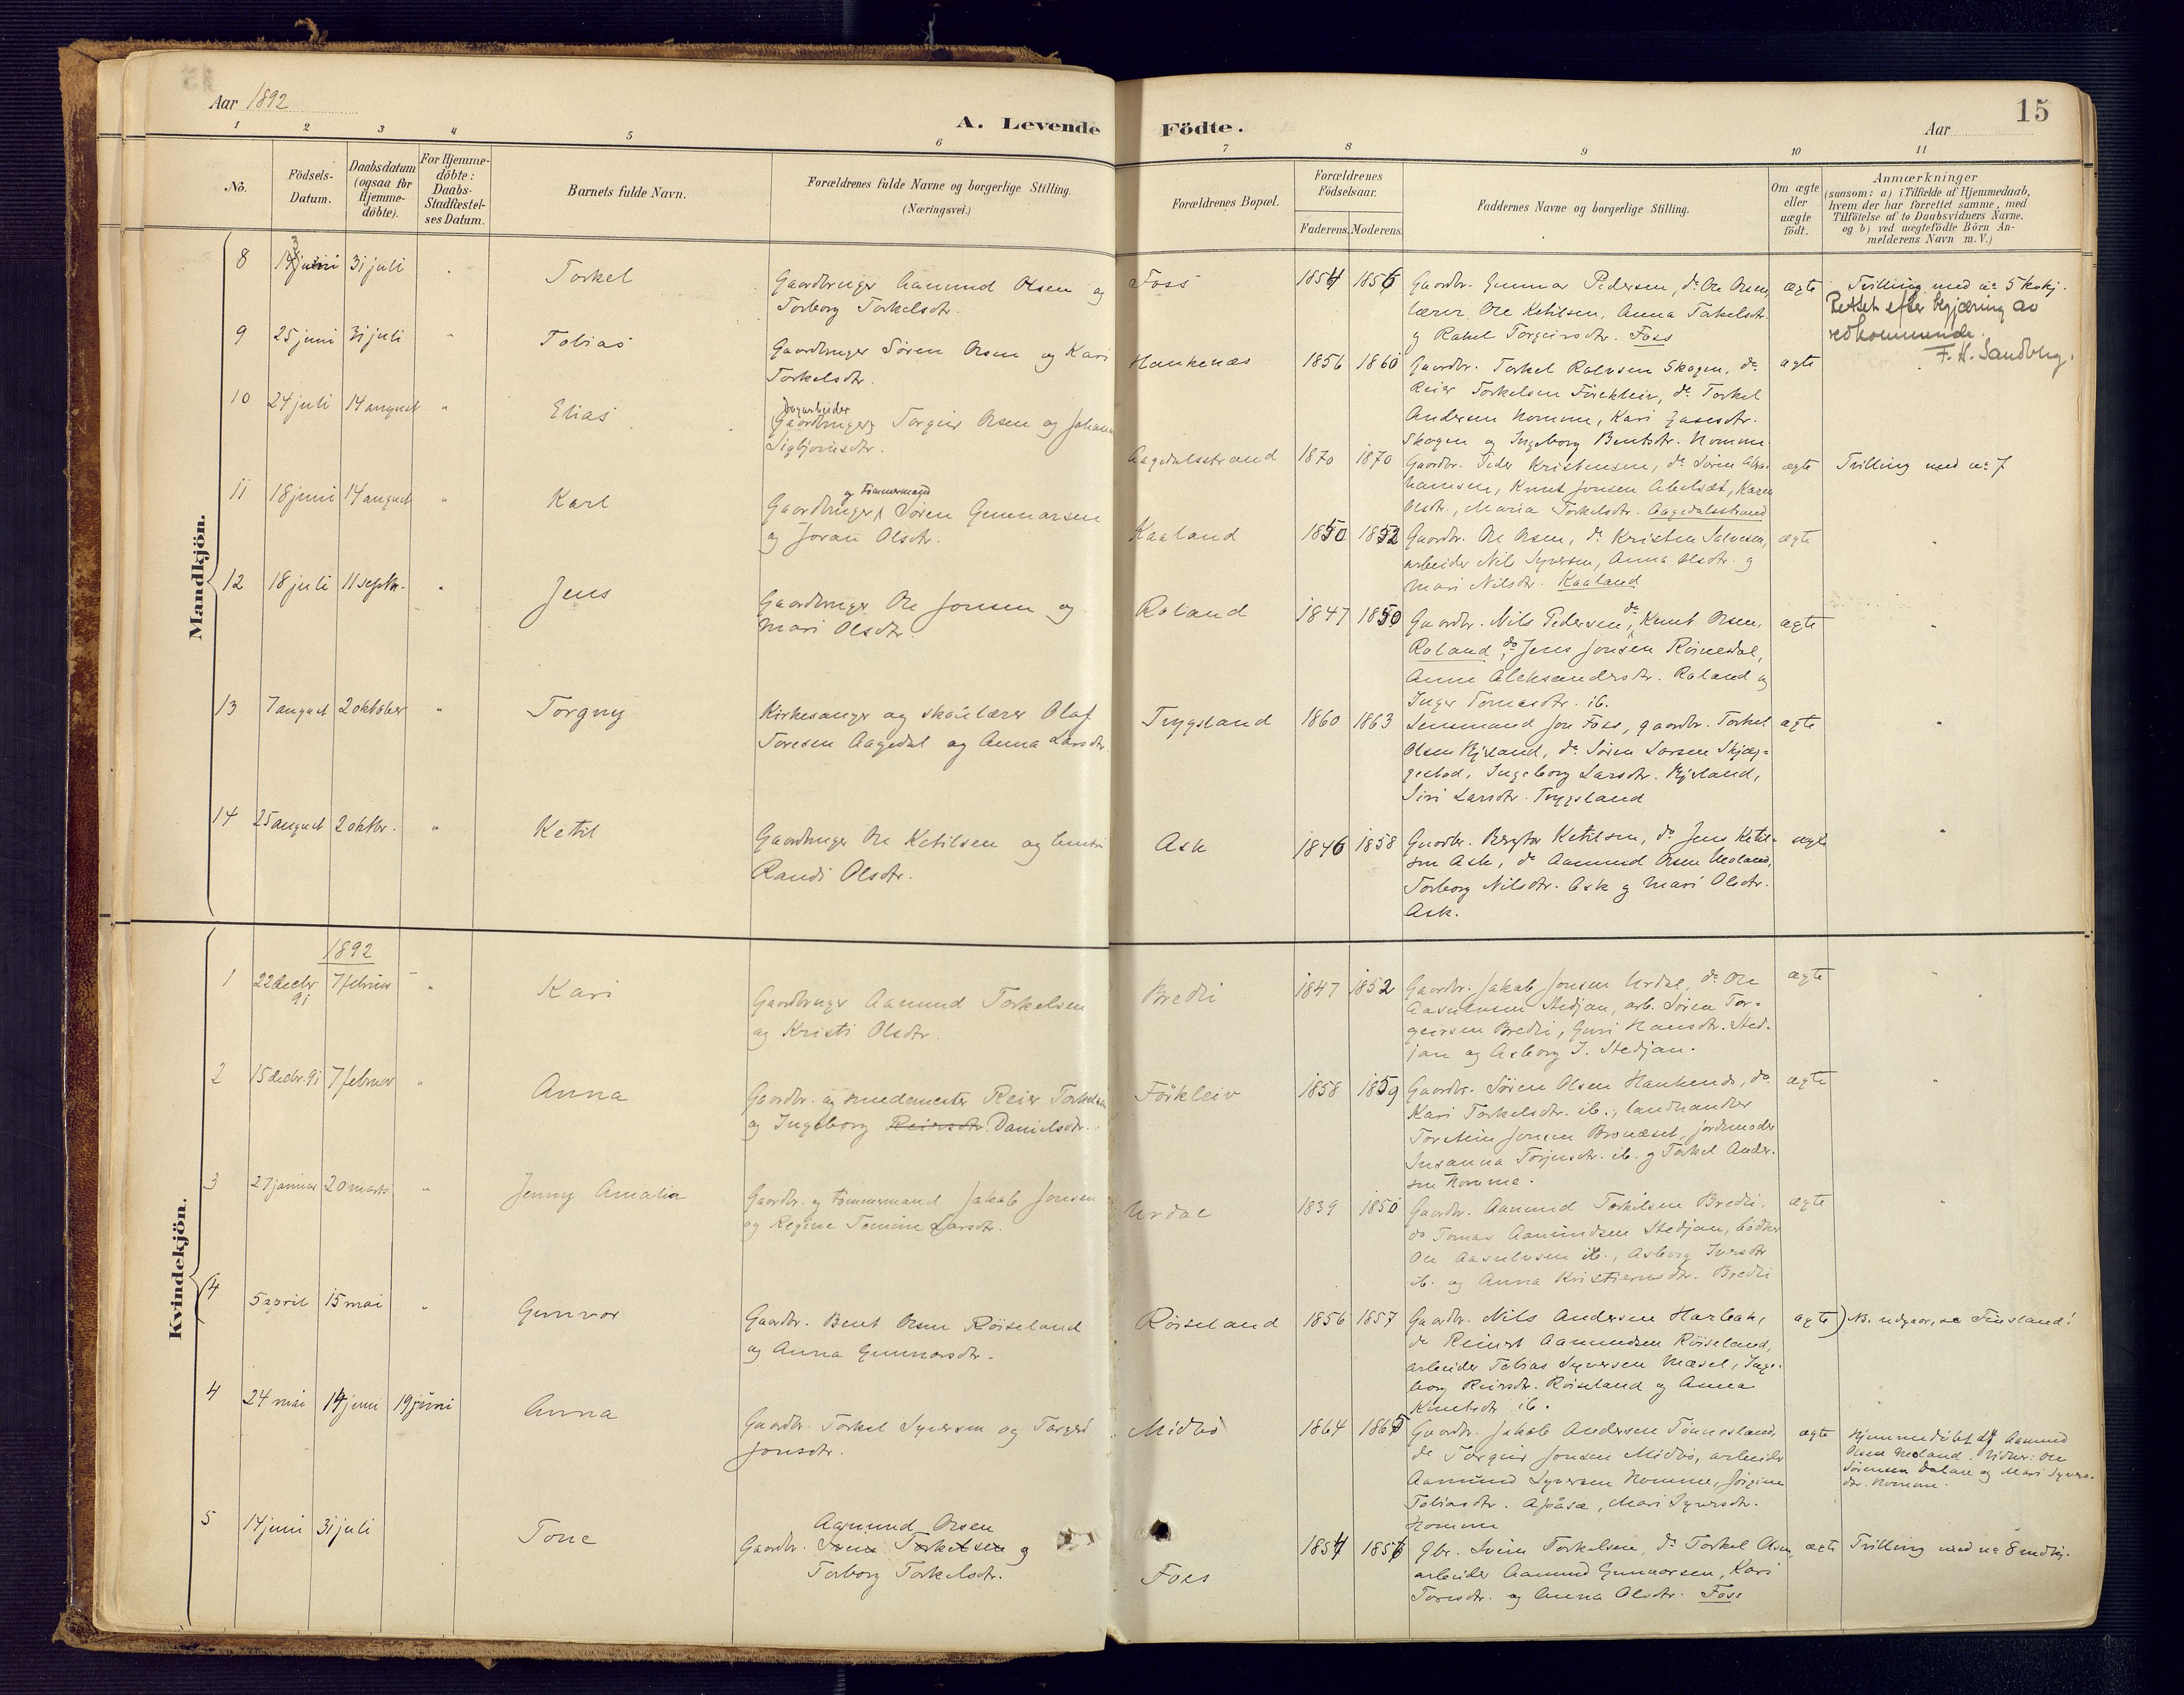 Aar 1892
A. Levende Födte.
15
Aar
1 2 3 4 5 6 7 8 9 10 11
No.
Födsels-Datum.
Daabsdatum (ogsaa for Hjemme-döbte).
For Hjemme-döbte: Daabs-Stadfæstel-ses Datum.
Barnets fulde Navn.
Forældrenes fulde Navne og borgerlige Stilling.
(Næringsvei.)
Forældrenes Bopæl.
Forældrenes Födselsaar.
Faderens. Moderens.
Faddernes Navne og borgerlige Stilling.
Om ægte eller uægte födt.
Anmærkninger
(saasom: a) i Tilfælde af Hjemmedaab,
hvem der har forrettet samme, med
Tilföielse af to Daabsvidners Navne.
og b) ved uægtefödte Börn An-
melderens Navn m.V.)
Mandkjön.
8 13 juni 31 juli Torkel
Gaardbruger Aamund Olsen og
Torborg Torkelsdtr.
Foss 1854 1856
Gaardbr. Gunnar Pedersen, do Ole Olsen,
lærer Ole Ketilsen, Anna Torkelsdtr.
og Rakel Torgeirsdtr. Foss
ægte
Tvilling med no 5 kvkj.
Rettet efter begjæring av
vedkommende.
F. H. Sandberg.
9 25 juni 31 juli " Tobias
Gaardbruger Sören Olsen og Kari
Torkelsdtr.
Hankenæs 1856 1860
Gaardbr. Torkel Rolvsen Skogen, do
Reier Torkelsen Förekleiv, do Torkel
Andersen Homme, Kari
Skogen og Ingeborg Bentsdtr. Homme
ægte
10 24 juli 14 august " Elias
Dagarbeider
(Gaardbruger) Torgeir Olsen og Johanne
Sigbjörnsdtr.
Aagedalsstrand 1870 1870
Gaardbr. Peder Kristensen, do Sören Abra-
hamsen, Knut Jonsen Abelsæt, Karen
Olsdtr., Maria Torkelsdtr. Aagedalsstrand
ægte
Tvilling med no 7
11 18 juni 14 august " Karl
og Tömmermand
Gaardbruger Sören Gunnarsen
og Joran Olsdtr.
Kaaland 1850 1852
Gaardbr. Ole Olsen, do Kristen Salvesen,
arbeider Nils Syversen, Anna Olsdtr. og
Mari Nilsdtr. Kaaland
ægte "
12 18 juli 11 septbr. " Jens
Gaardbruger Ole Jonsen og
Mari Olsdtr.
Röland 1847 1850
Gaardbr. Nils Pedersen, do Knut Olsen,
Röland, do Jens Jonsen Röinesdal,
Anne Aleksandersdtr. Röland og
Inger Tomasdtr. ib.
ægte "
13 7 august 2 oktober " Torgny
Kirkesanger og skolelærer Olaf
Toresen Aagedal og Anna Larsdtr.
Trygsland 1860 1863
Lensmand Jon Foss, gaardbr. Torkel
Olsen Bjelland, do Sören Larsen Skjæg-
gestad, Ingeborg Larsdtr. Bjelland,
Siri Larsdtr. Trygsland
ægte "
14 25 august 2 oktbr. " Ketil
Gaardbruger Ole Ketilsen og hustru
Randi Olsdtr.
Ask 1846 1858
Gaardbr. Bergtor Ketilsen, do Jens Ketil-
sen Ask, do Aamund Olsen Uvland,
Torborg Nilsdtr. Ask og Mari Olsdtr.
Ask.
ægte "
Kvindekjön.
1892
1 22 decbr 91 7 februar " Kari
Gaardbruger Aamund Torkelsen
og Kristi Olsdtr.
Bredli 1847 1852
Gaardbr. Jakob Jonsen Urdal, do Ole
Aasulvsen Stedjan, arb. Sören Tor-
geirsen Bredli, Guri Hansdtr. Sted-
jan og Asborg I. Stedjan.
ægte "
2 15 decbr. 91 7 februar " Anna
Gaardbr. og smedemester Reier Torkelsen
og Ingeborg Reiersdtr. Danielsdtr.
Förkleiv 1858 1859
Gaardbr. Sören Olsen Hankenæs, do
Kari Torkelsdtr. ib., landhandler
Torstein Jonsen Bronæset, jordmoder
Susanna Torjusdtr. ib. og Torkel Ander-
sen Homme.
ægte "
3 27 januar 20 marts " Jenny Amalia
Gaardbr. og tömmermand Jakob Jonsen
og Regine Tomine Larsdtr.
Urdal 1839 1850
Gaardbr. Aamund Torkilsen Bredli,
do Tomas Aamundsen Stedjan, bödker
Ole Aasulvsen ib., Asborg Iversdtr
ib. og Anna Kristiensdtr. Bredli
ægte "
4 5 april 15 mai " Gunvor
Gaardbr. Bent Olsen Röiseland
og Anna Gunnarsdtr.
Röiseland 1856 1857
Gaardbr. Nils Andersen Harbak,
do Reinert Aamundsen Röiseland,
arbeider Tobias Syversen Mæsel, Inge-
borg Reiersdtr. Röiseland og Anna
Knutsdtr ib.
ægte) NB. udgaar, se Finsland!
4 24 mai 19 juni 19 juni Anna
Gaardbr. Torkel Syversen og Torgerd
Jonsdtr.
Midbö 1864 1865
Gaardbr. Jakob Andersen Tönnesland,
do Torgeir Jonsen Midbö, arbeider
Aamund Syversen Homme, Jörgine
Tobiasdtr. , Mari Syversdtr.
Homme
ægte
Hjemmedöbt af Aamund
Olsen Uvland. Vidner: Ole
Sörensen Dalane og Mari Syvers-
dtr. Homme.
5 14 juni 31 juli Tone
Aamund Olsen
Gaardbr. Svein Torkelsen og
Torborg Torkelsdtr.
Foss 1854 1856
Gbr. Svein Torkelsen, do Torkel Olsen,
arbeider Aamund Gunnarsen, Kari
Toresdtr. og Anna Olsdtr. Foss
ægte Tvilling med no 8 mdkj.